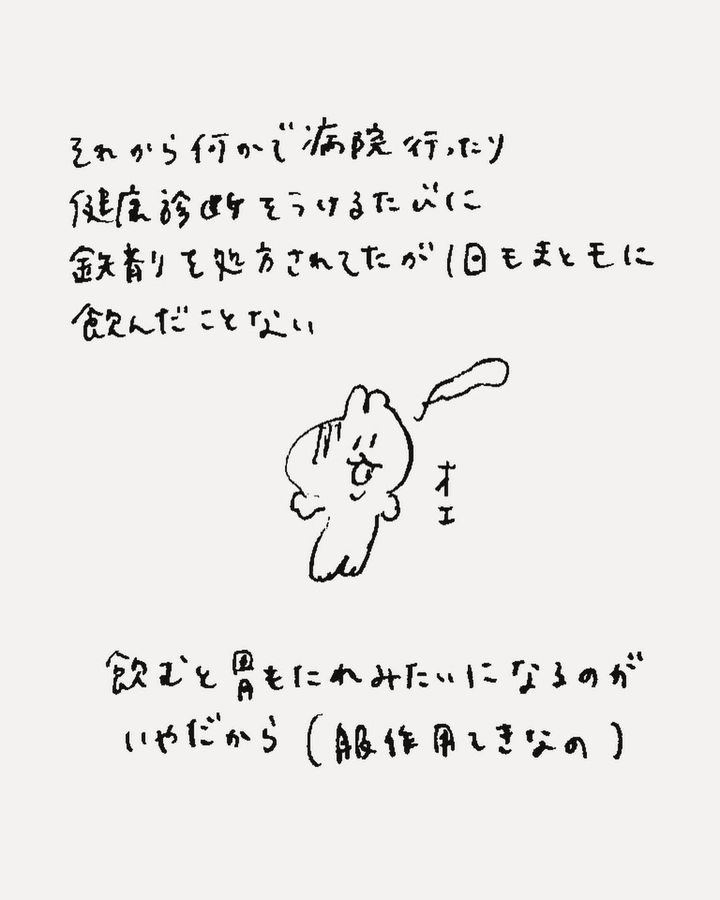 それから何かで病院行ったり
健康診断をうけるたびに
鉄剤を処方されてたが1回もまともに
飲んだことない
オエ
飲むと胃もたれみたいになるのが
いやだから(服作用てきなの)